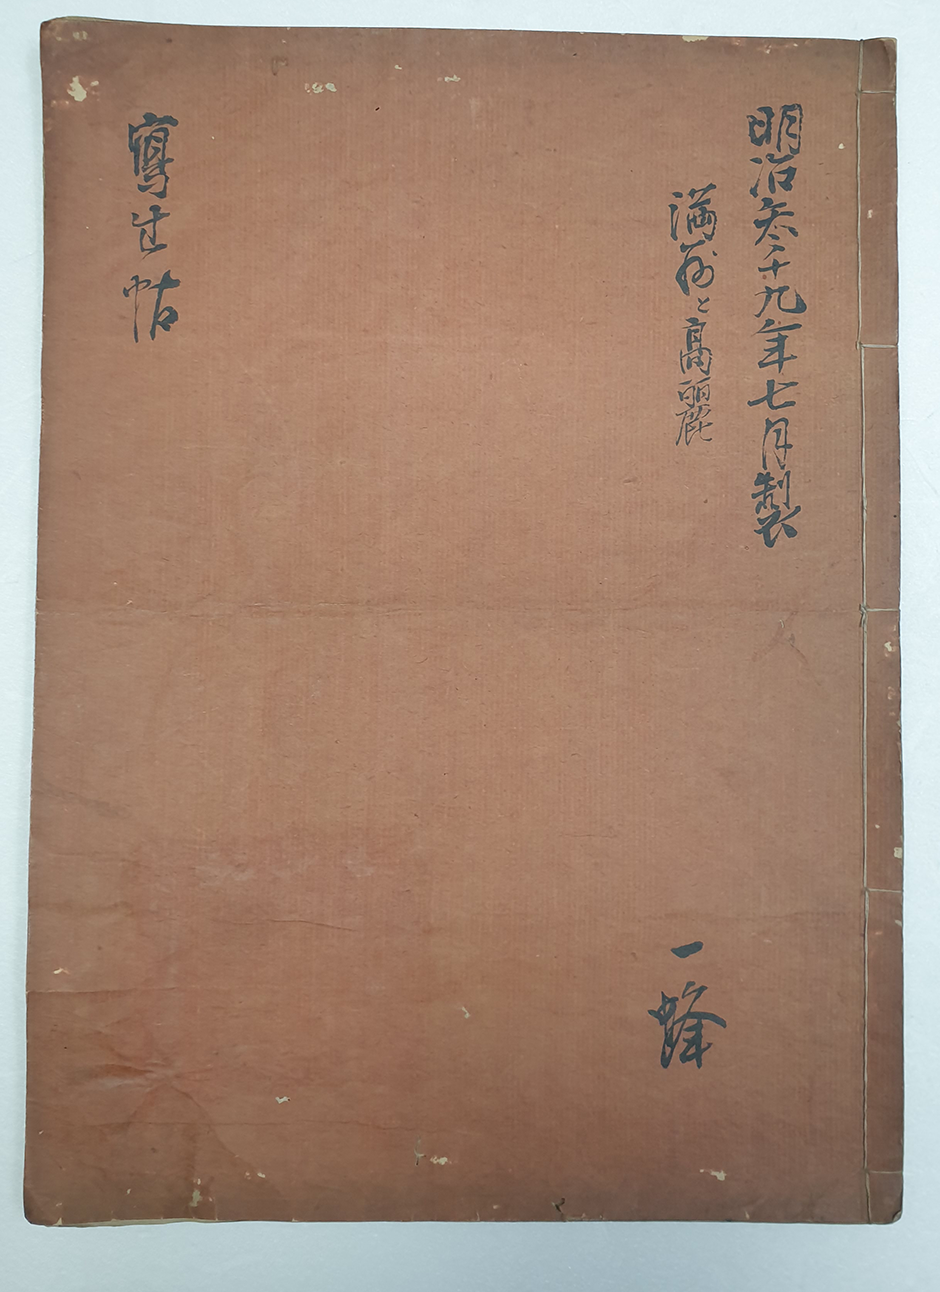 明治参十九年七月製
満州と高麗
一峰
寫生帖